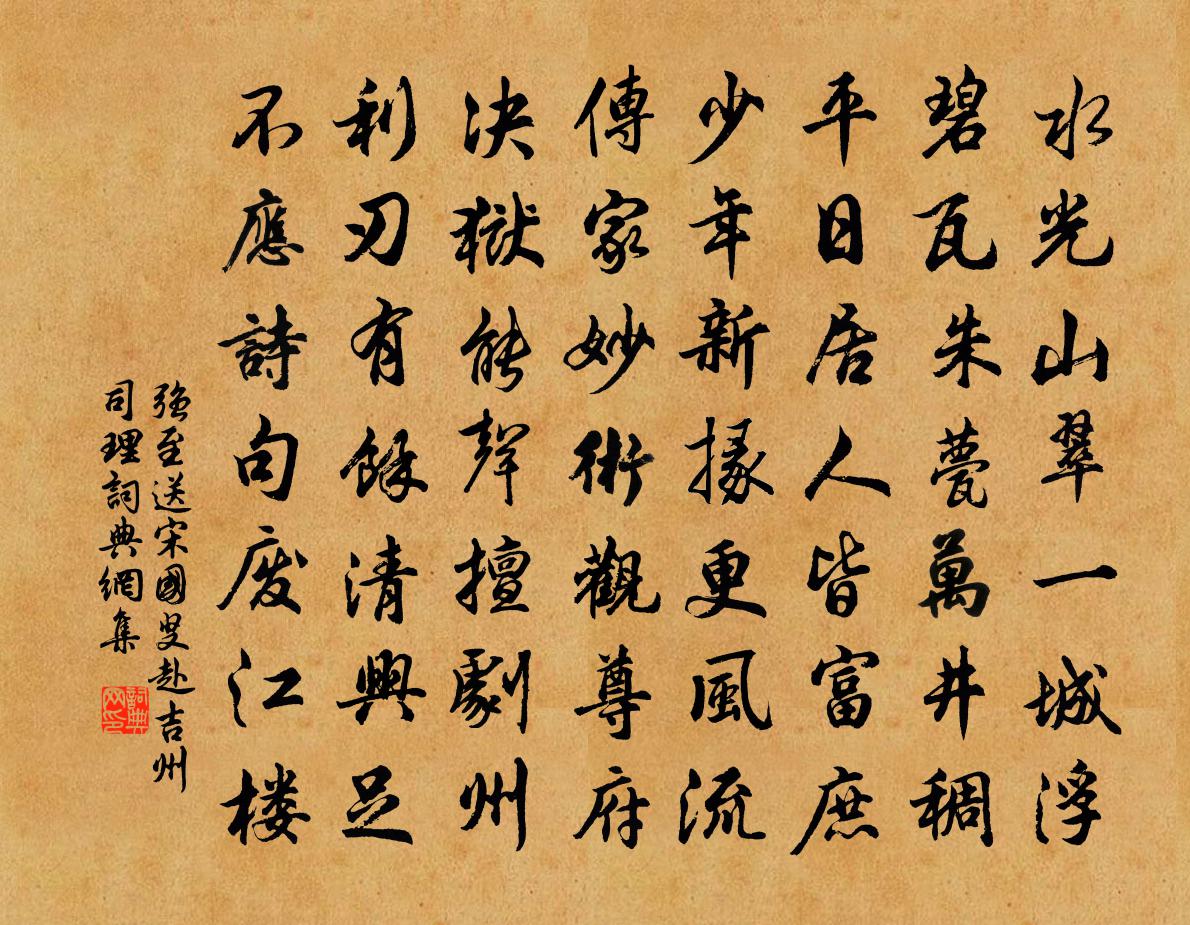 水光山翠一城浮
碧瓦朱甍萬井稠
平日居人皆富庶
少年新掾更風流
傳家妙術觀尊府
決獄能聲擅劇州
利刃有餘清興足
不應詩句廢江楼
強至送宋國叟赴吉州
司理詞典網集
詞典
网印